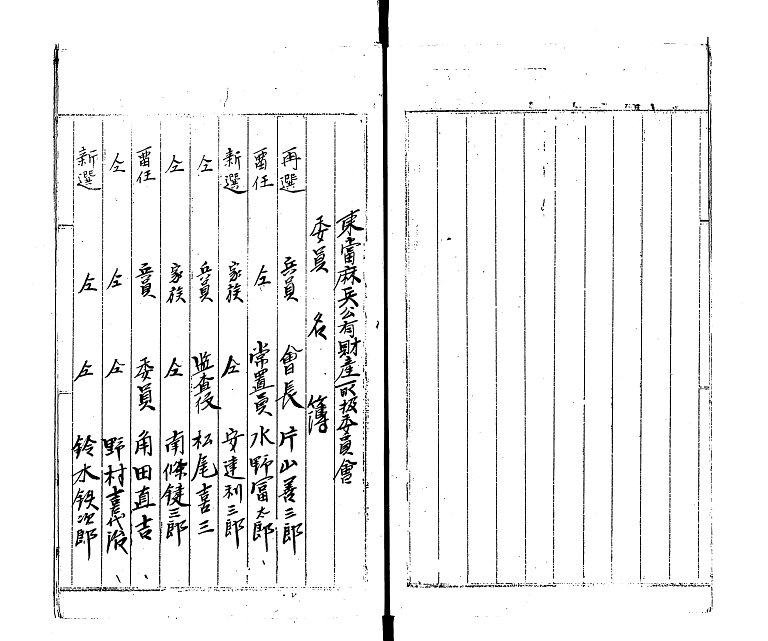 東當麻兵公有財産取扱委員會
委員名簿
再選 兵員 會長 片山善三郎
畱任 仝 常置員 水野冨太郎、
新選 家族 仝 安達利三郎
仝 兵員 监查役 松尾喜三
仝 家族 仝 南條鍵三郎
畱任 兵員 委員 角田直吉、
仝 仝 仝 野村喜代治、
新選 仝 仝 鈴木铁次郎